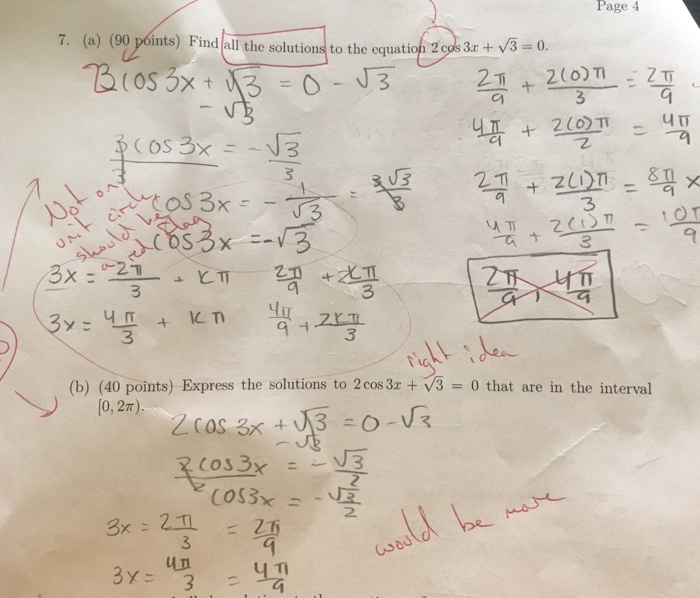 Page 4
7. (a) (90 points) Find all the solutions to the equation 2 cos 3x + √3 = 0.
3 cos 3x + √3 = 0 - √3
- √3
3 cos 3x = - √3
3 3
cos 3x = - 1/√3 = 3√3/3
cos 3x = -√3
Not on
unit circle
should be
a red flag
3x = 2π/3 + kπ 2π/9 + 2kπ/3
3x = 4π/3 + kπ 4π/9 + 2kπ/3
2π/9 + 2(0)π/3 = 2π/9
4π/9 + 2(0)π/2 = 4π/9
2π/9 + 2(1)π/3 = 8π/9 x
4π/9 + 2(1)π/3 = 10π/9
2π/9, 4π/9
right idea
(b) (40 points) Express the solutions to 2 cos 3x + √3 = 0 that are in the interval
[0, 2π).
2 cos 3x + √3 = 0 - √3
- √3
2 cos 3x = - √3
2 2
cos 3x = - √3/2
3x = 2π/3 = 2π/9
3x = 4π/3 = 4π/9
would be more